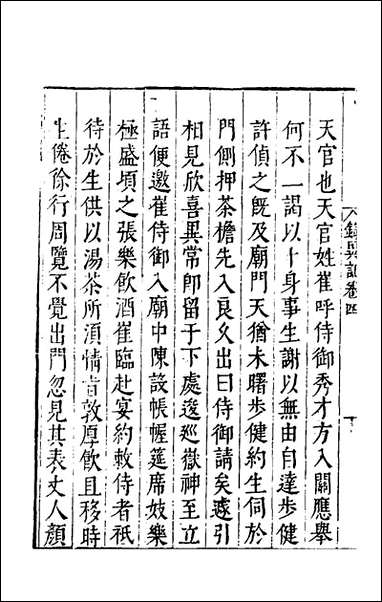 集異記卷四
天官也天官姓崔呼侍御秀才方入關應舉
何不一謁以卜身事生謝以無由自達步健
許偵之旣及廟門天猶未曙步健約生伺於
門側押茶檐先入良久出曰侍御請矣遽引
相見欣喜異常卽留于下處逡巡嶽神至立
語便邀崔侍御入廟中陳設帳幄筵席妓樂
極盛頃之張樂飮酒崔臨赴宴約敕侍者祇
待於生供以湯茶所須情旨敦厚飮且移時
生倦徐行周覽不覺出門忽見其表丈人顏